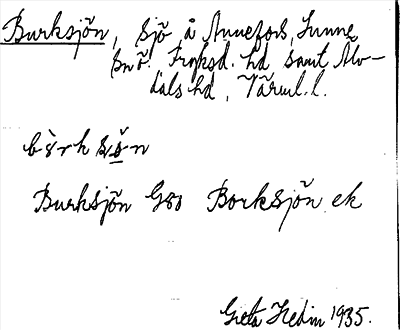 Burksjön, sjö å Annefors, Sunne
snö. Fryksd. hd samt Älv-
dals hd, Värml. l.
Burksjön G80 Borksjön ek
Greta Hedin 1935.